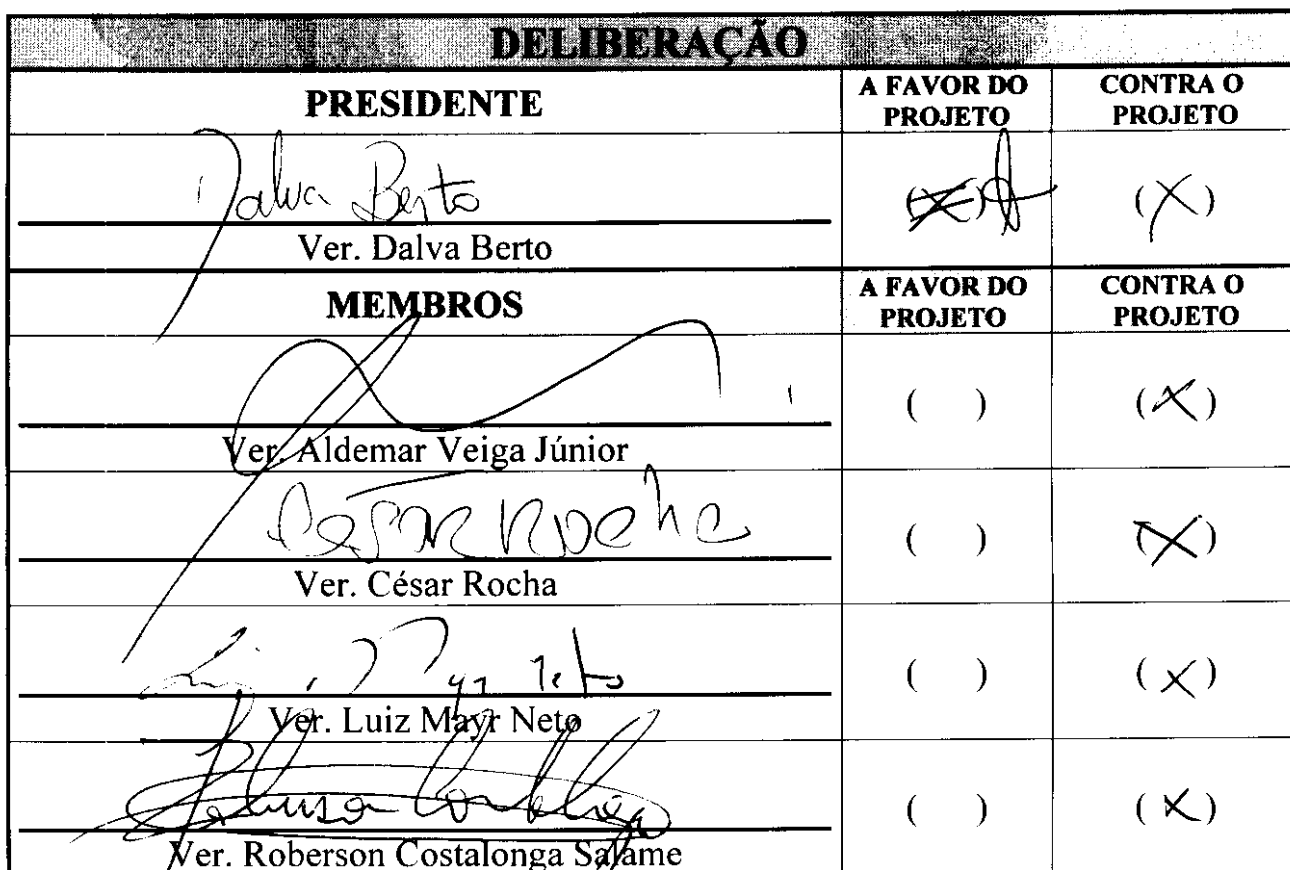 DELIBERAÇÃO
PRESIDENTE
A FAVOR DO PROJETO
CONTRA O PROJETO
Dalva Berto
(X)
(X)
Ver. Dalva Berto
MEMBROS
A FAVOR DO PROJETO
CONTRA O PROJETO
( )
(X)
Ver. Aldemar Veiga Júnior
César Rocha
( )
(X)
Ver. César Rocha
( )
(X)
Ver. Luiz Mayr Neto
( )
(X)
Ver. Roberson Costalonga Salame